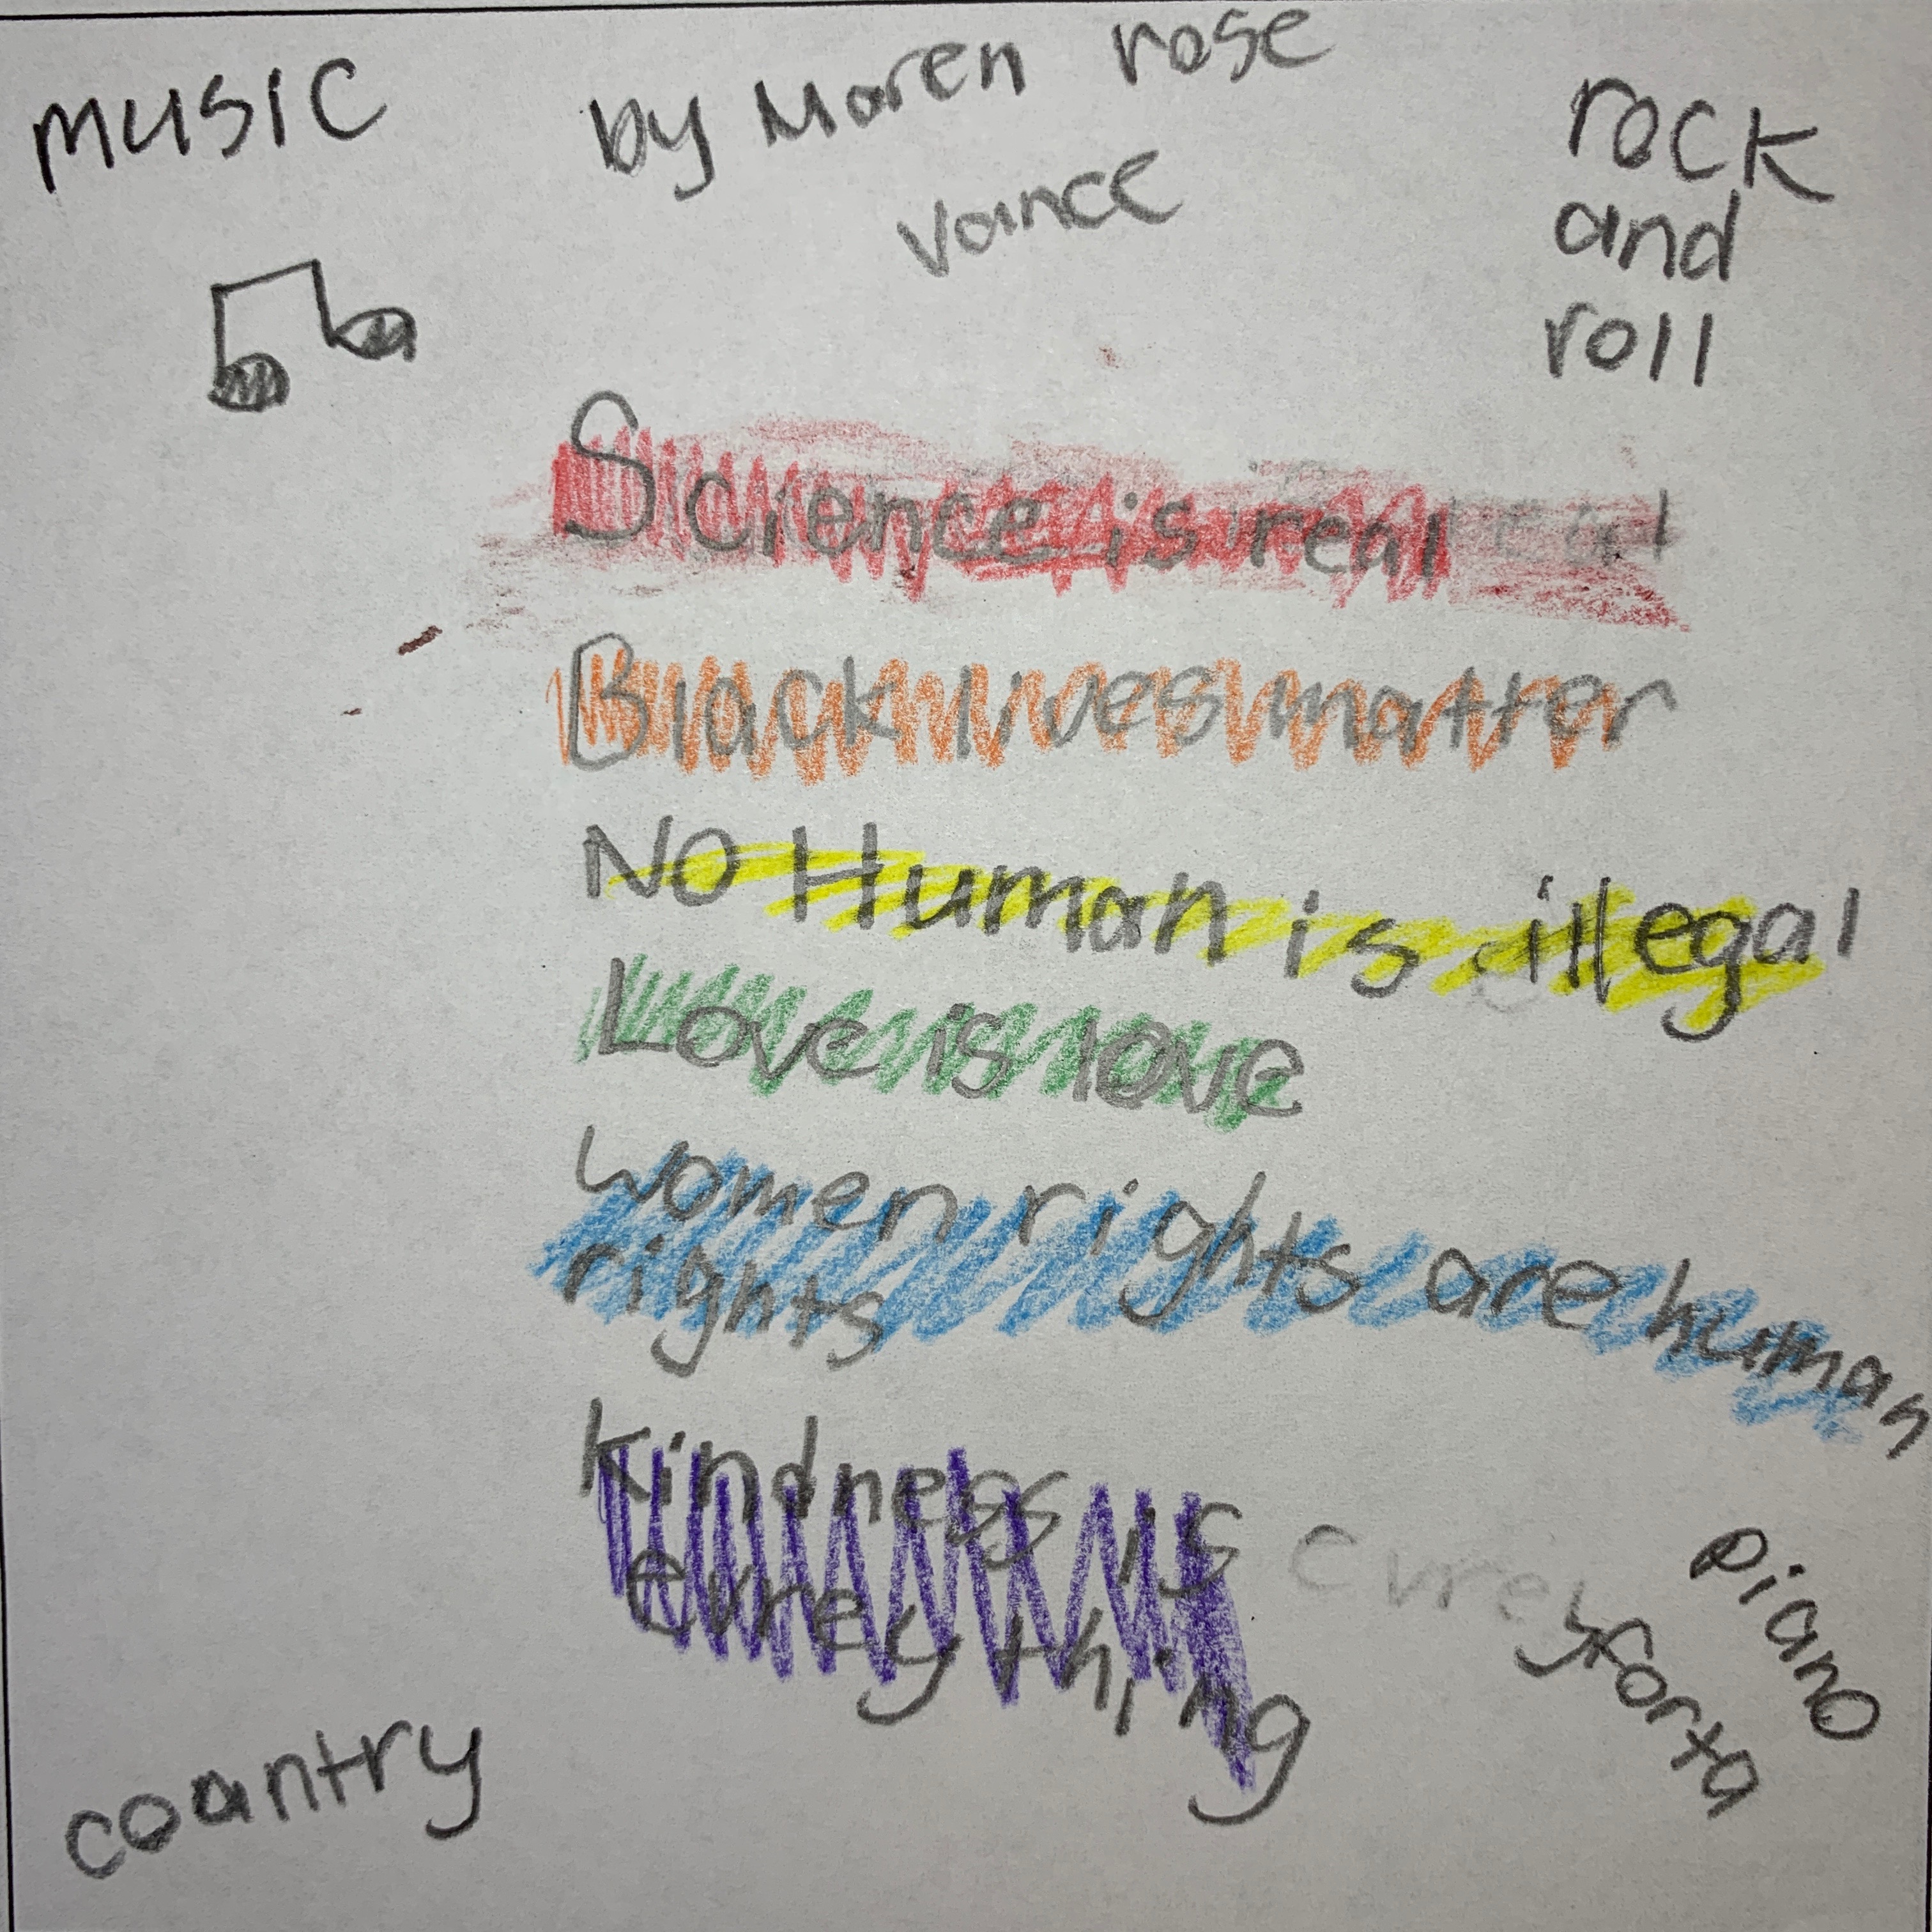 music
by Maren rose
vance
rock
and
roll
Science is real eal
Black lives matter
No Human is illegal
Love is love
women rights are human
rights
kindness is evrey
evrey thing
piano
forta
coantry